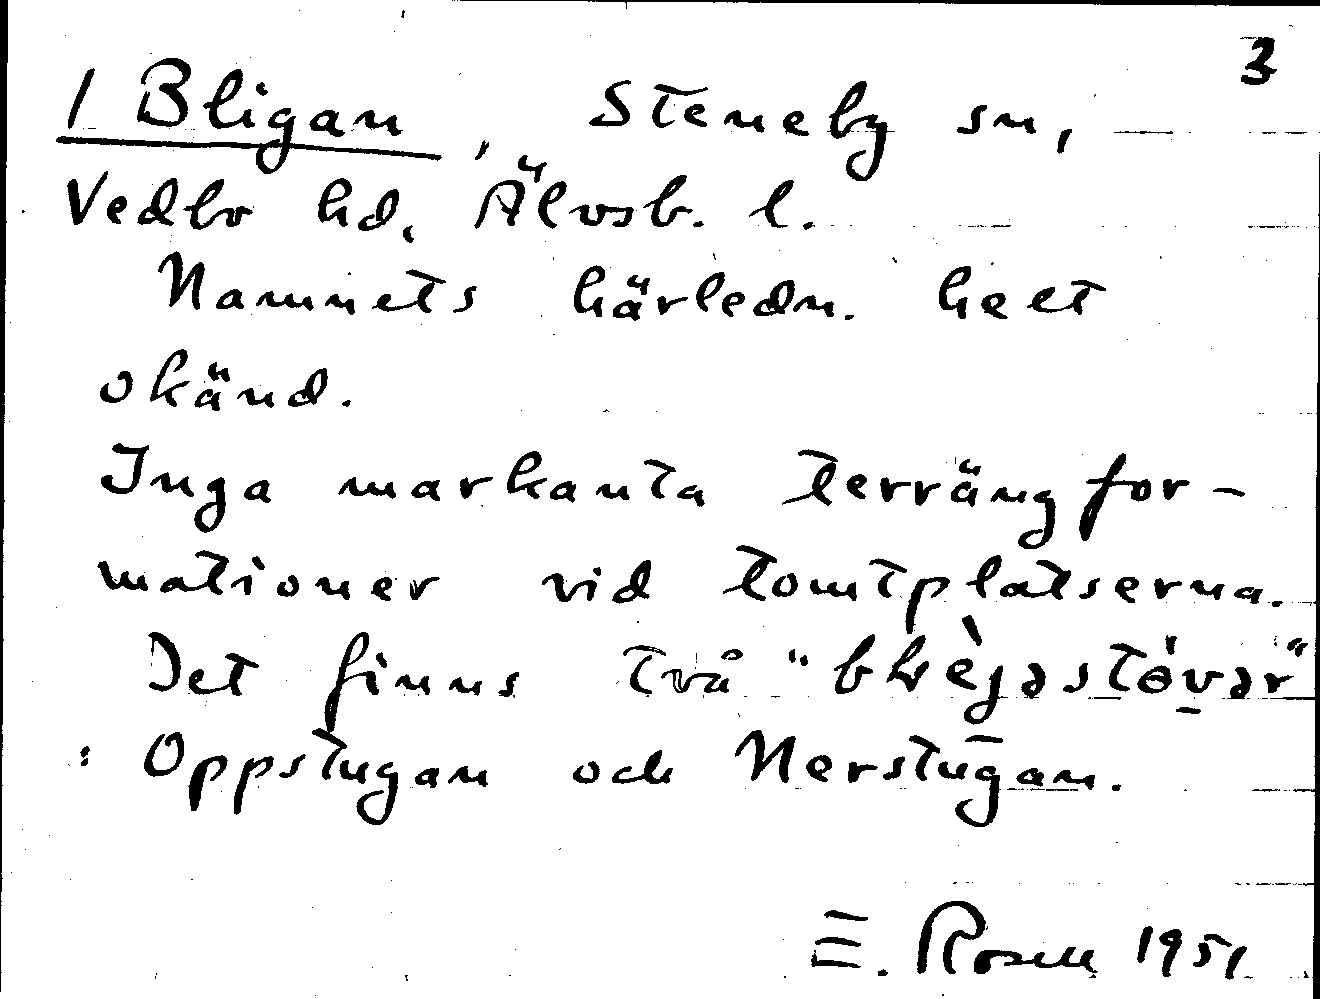 3
1 Bligan, Steneby sn,
Vedbo hd, Älvsb. l.
Namnets härledn. helt
okänd.
Inga markanta terrängfor-
mationer vid tomtplatserna.
Det finns två "
: Oppstugan och Nerstugan.
E. Rosell 1951